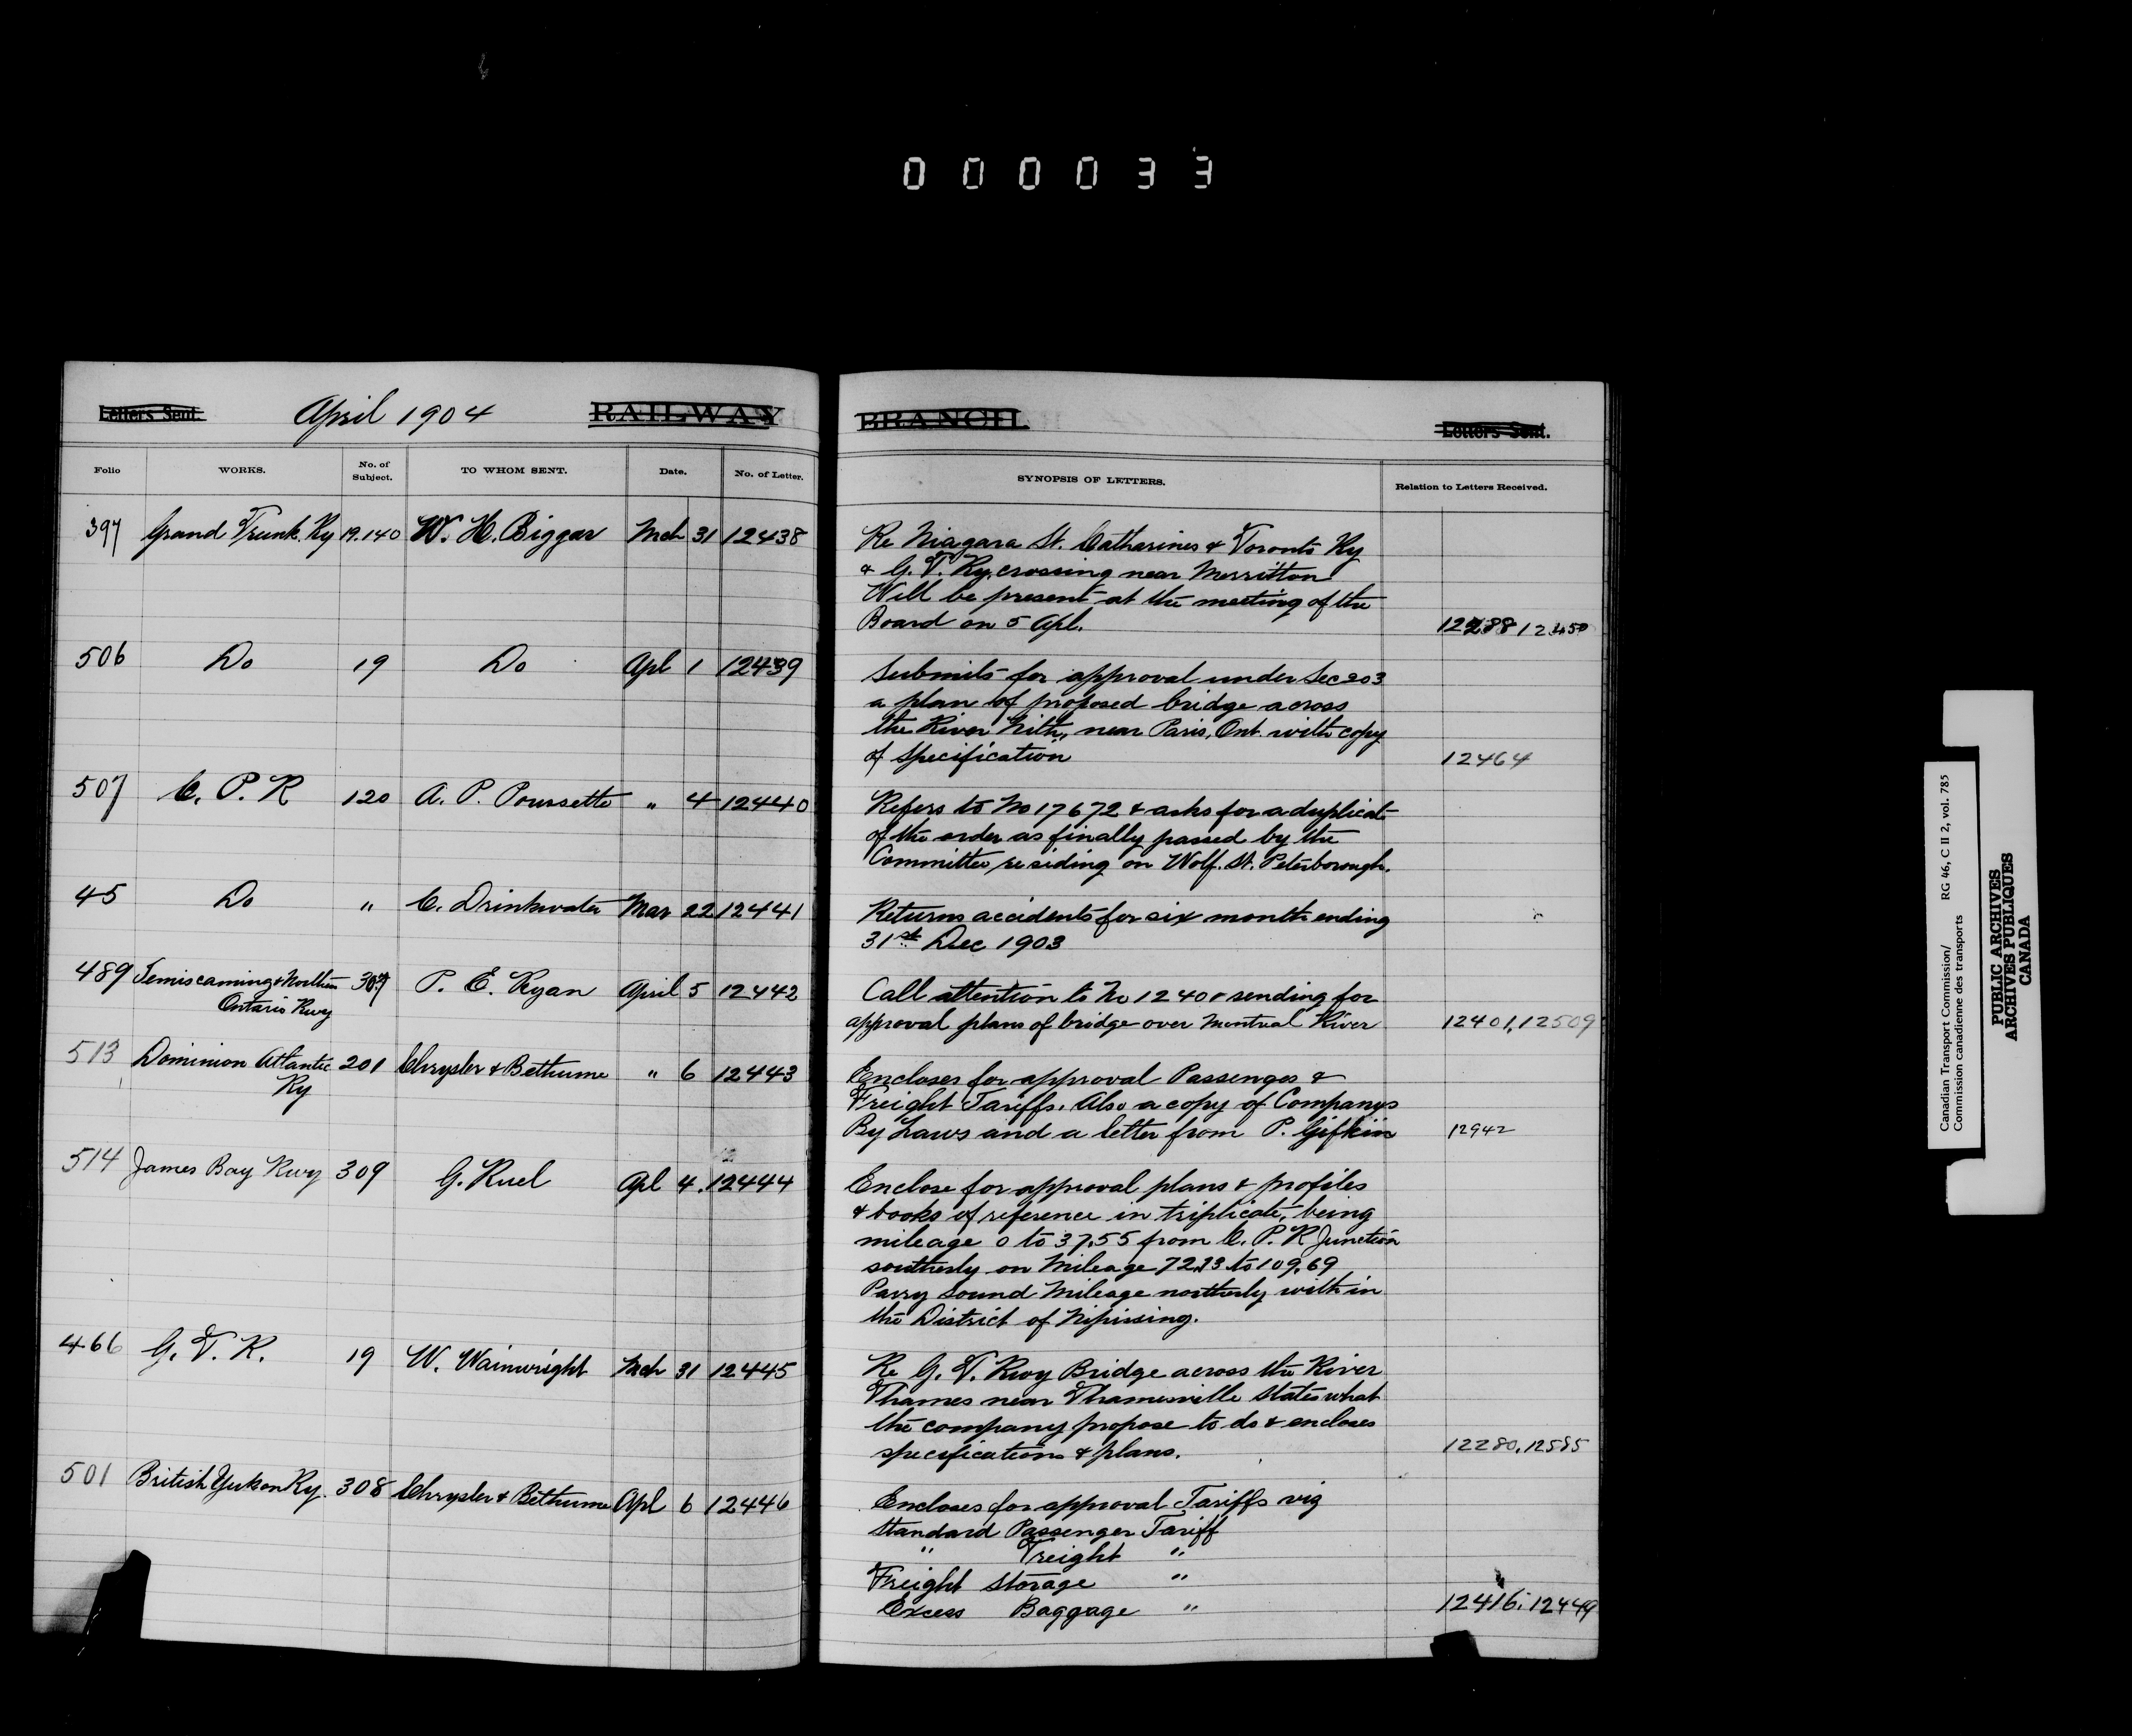 000033
Letters Sent. April 1904 RAILWAY BRANCH. Letters Sent.
Folio WORKS. No. of Subject. TO WHOM SENT. Date. No. of Letter. SYNOPSIS OF LETTERS. Relation to Letters Received.
397 Grand Trunk Ry 19.140 W. H. Biggar Mch 31 12438 Re Niagara St. Catharines & Toronto Ry
& G. T. Ry. crossing near Merritton
Will be present at the meeting of the
Board on 5 Apl. 12288 12450
506 Do 19 Do Apl 1 12439 Submits for approval under Sec 203
a plan of proposed bridge across
the River Nith, near Paris, Ont. with copy
of specification 12464
507 C. P. R 120 A. P. Poussette " 4 12440 Refers to No 17672 & asks for a duplicate
of the order as finally passed by the
Committee re siding on Wolf. St. Peterborough.
45 Do " C. Drinkwater Mar 22 12441 Returns accidents for six month ending
31st Dec 1903
489 Temiscaming & Northern 307 P. E. Ryan April 5 12442 Call attention to No 12401 sending for
Ontario Rwy approval plans of bridge over Montreal River 12401, 12509
513 Dominion Atlantic 201 Chrysler & Bethune " 6 12443 Encloses for approval Passenger &
Ry Freight Tariffs. Also a copy of Companys
By Laws and a letter from P. Gifkin 12942
514 James Bay Rwy 309 G. Ruel Apl 4. 12444 Enclose for approval plans & profiles
& books of reference in triplicate, being
mileage 0 to 37.55 from C. P. R Junction
southerly on Mileage 72.13 to 109.69
Parry Sound Mileage northerly with in
the District of Nipissing.
466 G. T. R. 19 W. Wainwright Mch 31 12445 Re G. T. Rwy Bridge across the River
Thames near Thamesville States what
the company propose to do & encloses
specifications & plans. 12280, 12585
501 British Yukon Ry. 308 Chrysler & Bethune Apl 6 12446 Encloses for approval Tariffs viz
Standard Passenger Tariff
" Freight "
Freight Storage "
Excess Baggage " 12416. 12449
Canadian Transport Commission/ RG 46, C II 2, vol. 785
Commission canadienne des transports
PUBLIC ARCHIVES
ARCHIVES PUBLIQUES
CANADA